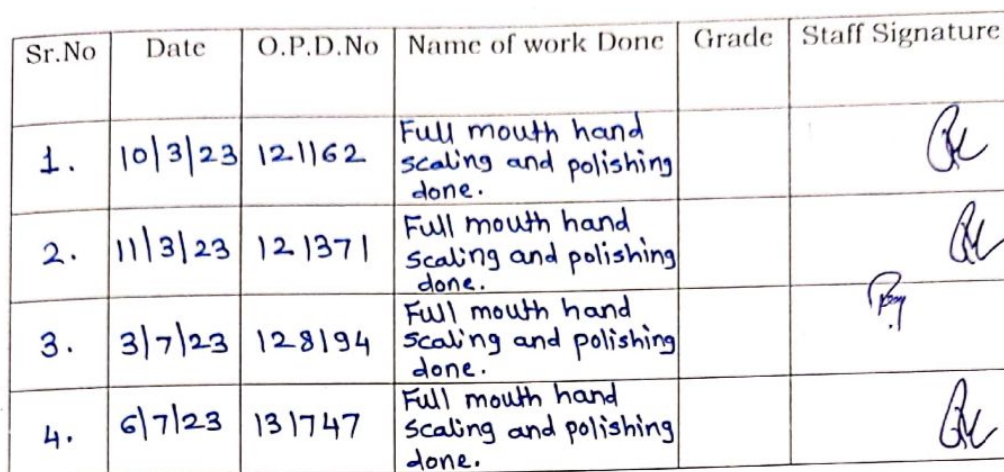 Sr.No Date O.P.D.No Name of work Done Grade Staff Signature
1. 10/3/23 121162 Full mouth hand
scaling and polishing
done.
2. 11/3/23 121371 Full mouth hand
scaling and polishing
done.
3. 3/7/23 128194 Full mouth hand
scaling and polishing
done.
4. 6/7/23 131747 Full mouth hand
scaling and polishing
done.